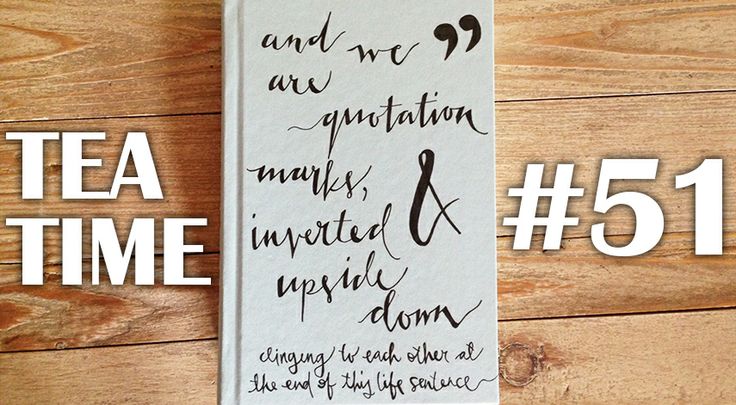 TEA
TIME
and we ”
are
quotation
marks,
inverted &
upside
down
clinging to each other at
the end of this life sentence
#51